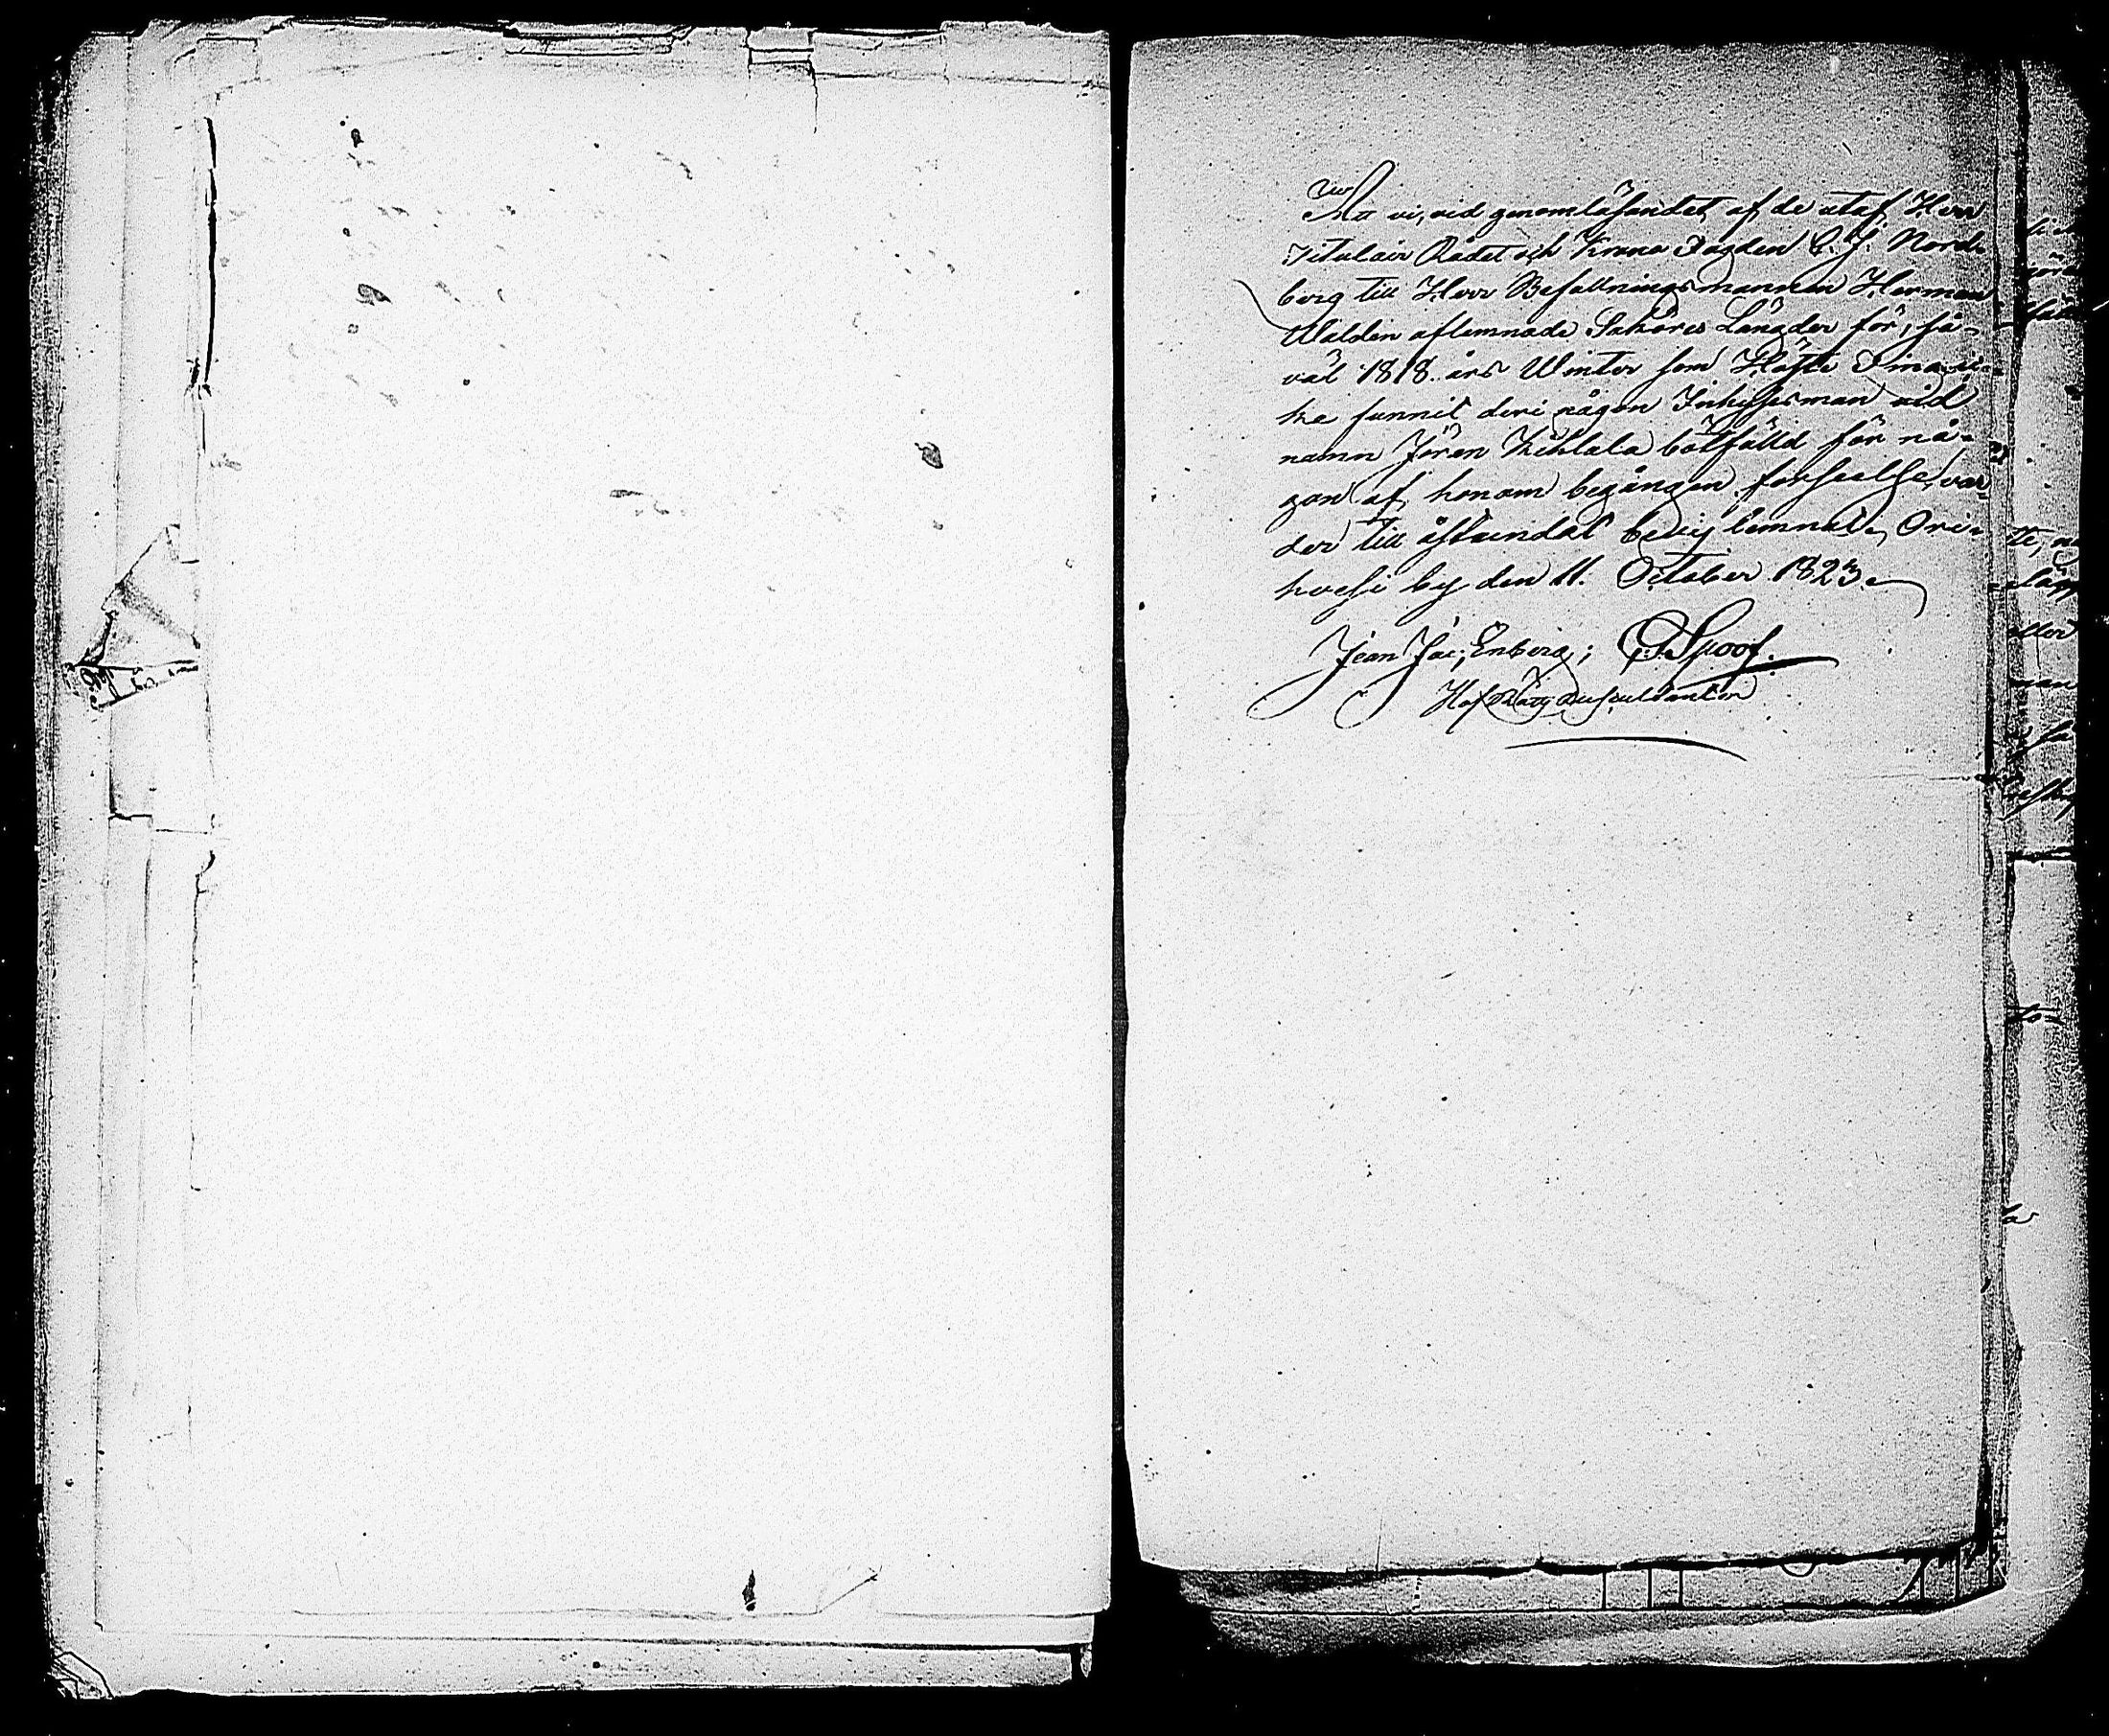 Att vi, vid genomläsandet af de utaf Herr
Titulair Rådet och Krono Fogden C. J. Nord-
berg till Herr Befallningsmannen Herman
Waldén aflemnade Saköres Längder för, så-
väl 1818 års Winter som Höste Ting, ic-
ke funnit deri någon Inhysesman vid
namn Jöran Kihlala botfälld för nå-
gon af honom begången förseelse, var-
der till åstundat bevis lemnadt, Ori-
hvesi by den 11. October 1823.
Jean Jac; Enberg; Spoof.
Hof Rätts Auscultanter